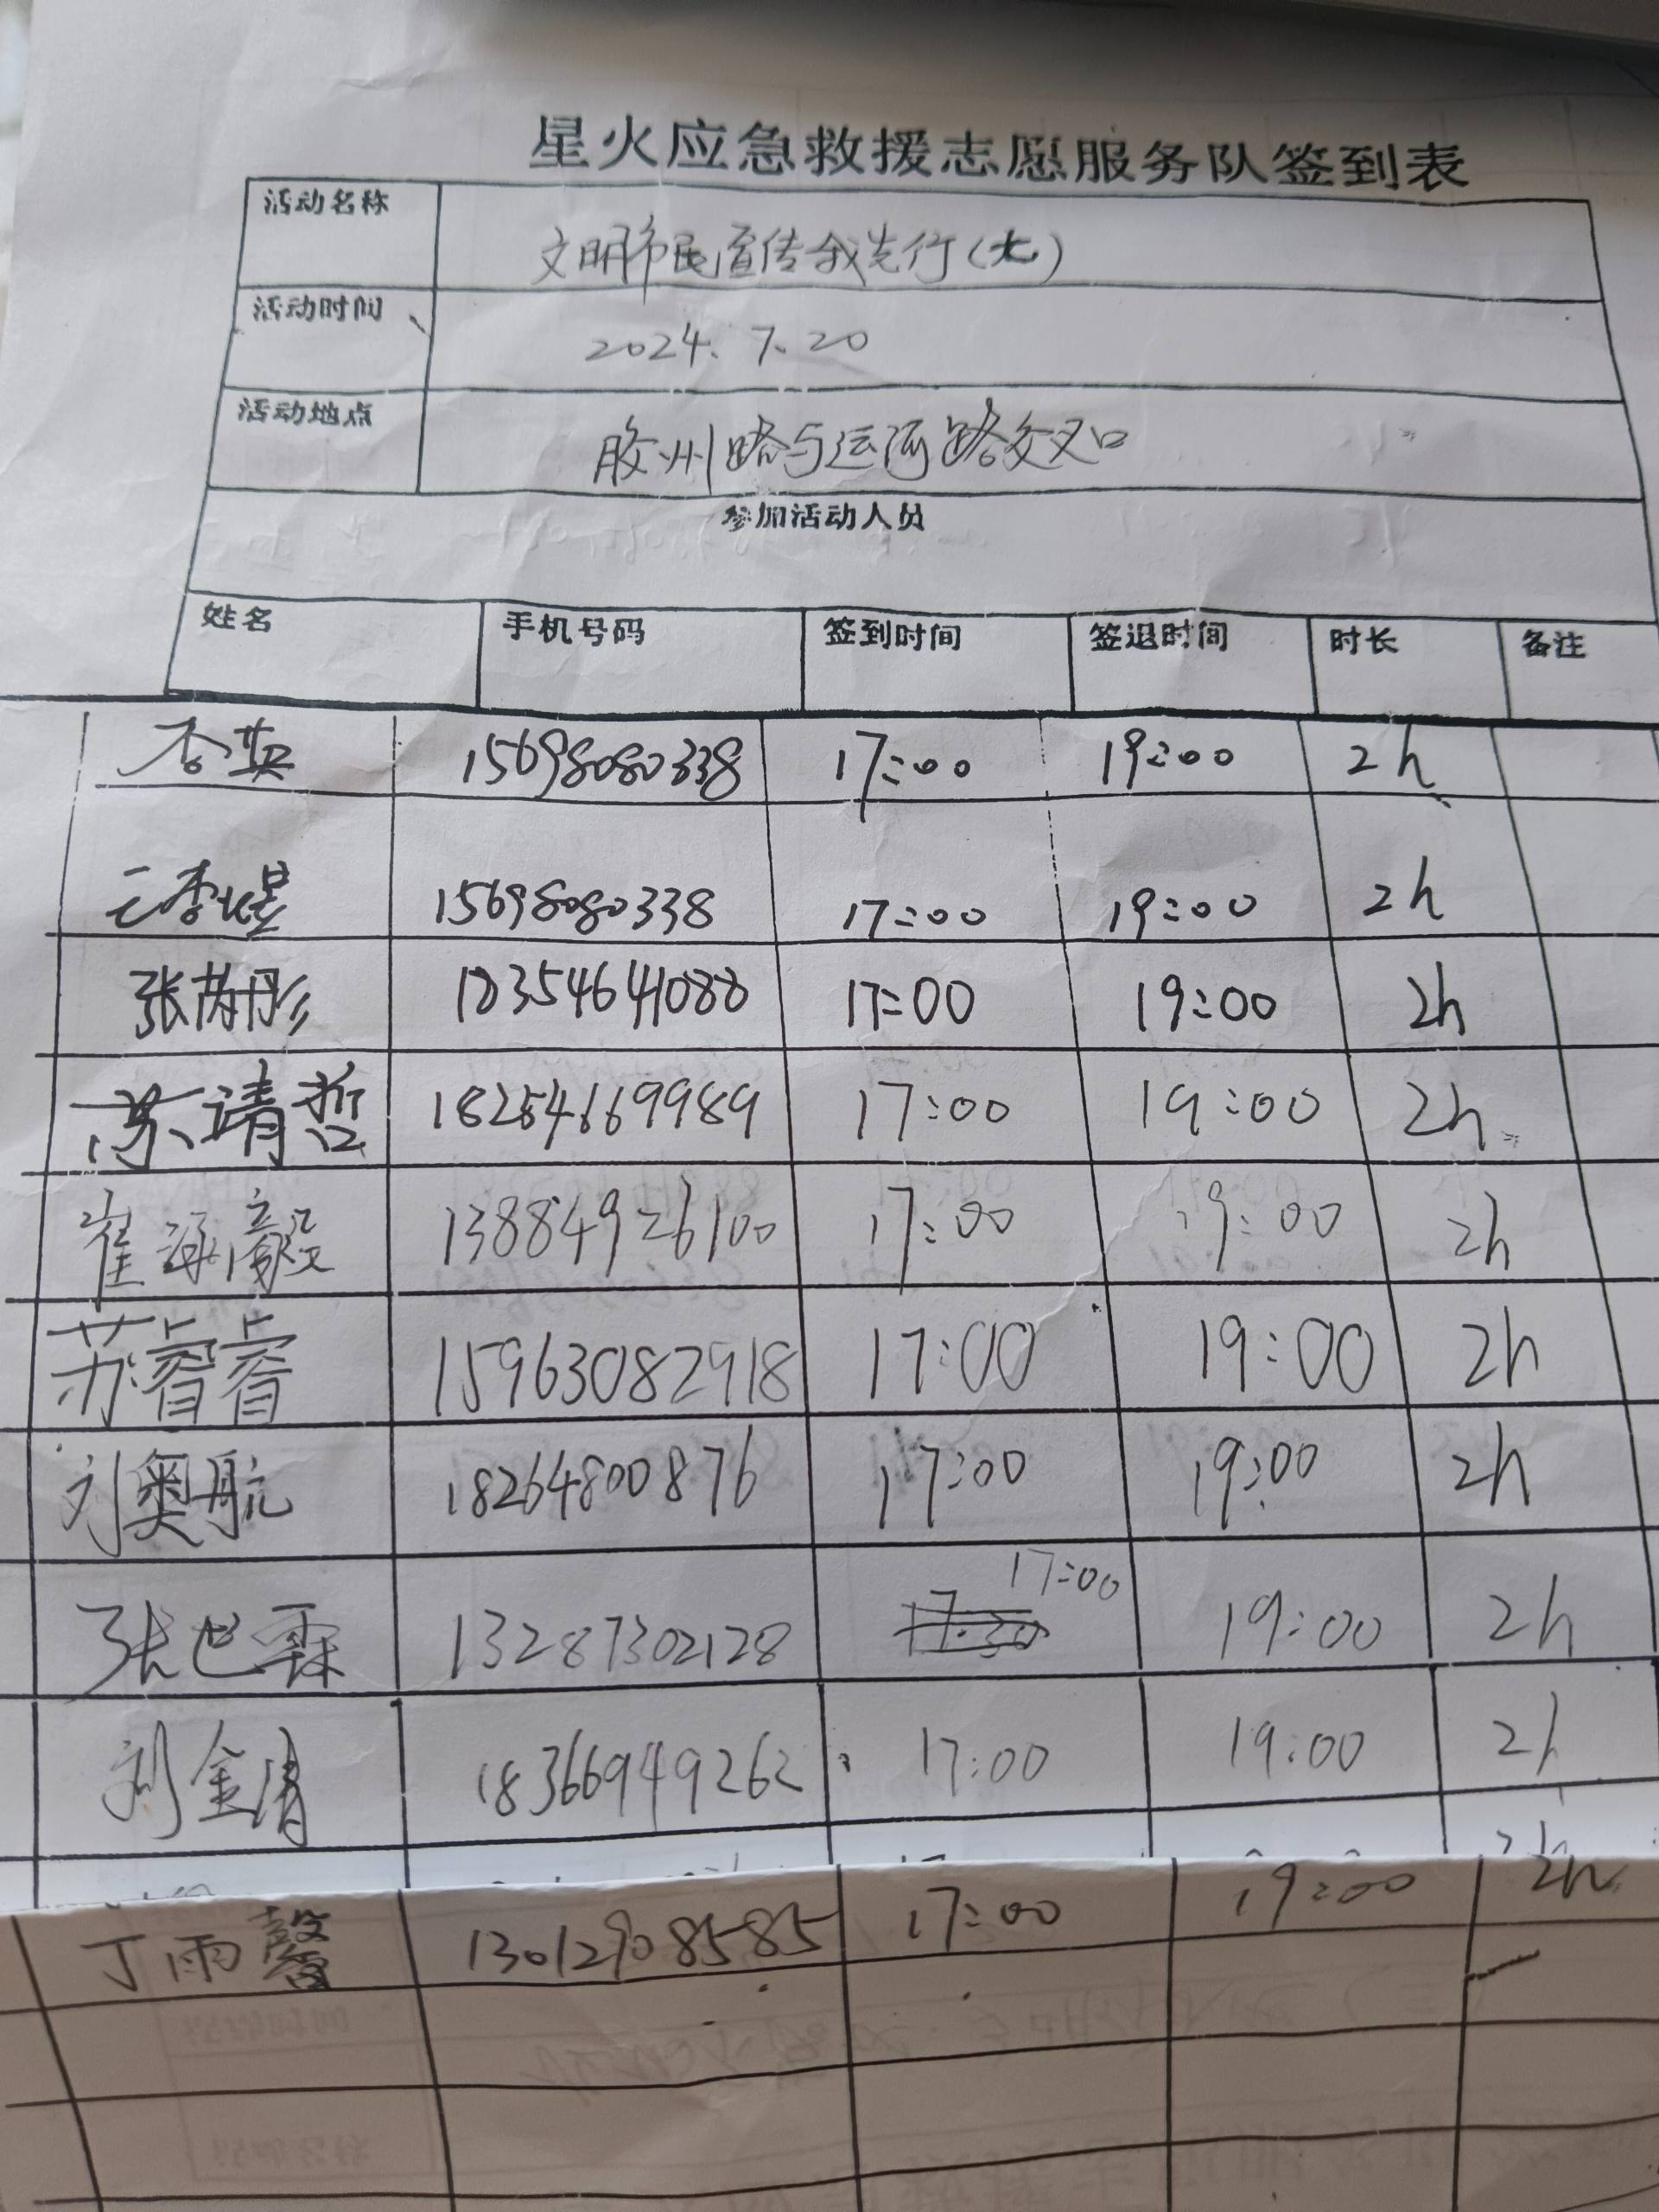 星火应急救援志愿服务队签到表
活动名称 文明市民宣传我先行(七)
活动时间 2024.7.20
活动地点 胶州路与运河路交叉口
参加活动人员
姓名 手机号码 签到时间 签退时间 时长 备注
15698080338 17:00 19:00 2h
15698080338 17:00 19:00 2h
张芮彤 18354641088 17:00 19:00 2h
苏靖哲 18254669989 17:00 19:00 2h
崔 毅 13884926100 17:00 19:00 2h
苏睿睿 15963082918 17:00 19:00 2h
刘奥航 18264800876 17:00 19:00 2h
张 霖 13287302128 17:30 17:00 19:00 2h
刘金清 18366949262 17:00 19:00 2h
2h
丁雨馨 13012908585 17:00 19:00 2h